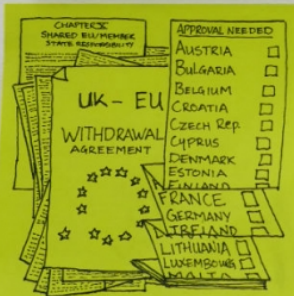 CHAPTER X
SHARED EU/MEMBER
STATE RESPONSIBILITY
UK - EU
WITHDRAWAL
AGREEMENT
APPROVAL NEEDED
AUSTRIA
BULGARIA
BELGIUM
CROATIA
CZECH REP.
CYPRUS
DENMARK
ESTONIA
FINLAND
FRANCE
GERMANY
IRELAND
LITHUANIA
LUXEMBOURG
MALTA